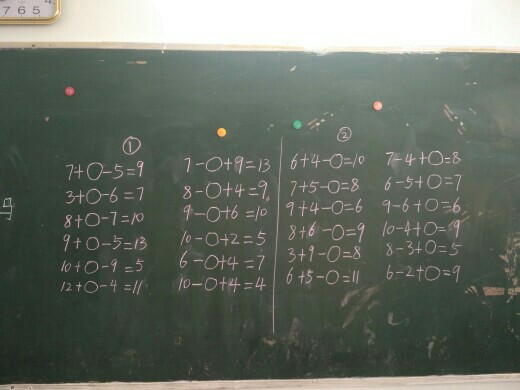 4
7 6 5
① ②
7+○-5=9 7-○+9=13 6+4-○=10 7-4+○=8
3+○-6=7 8-○+4=9 7+5-○=8 6-5+○=7
8+○-7=10 9-○+6=10 9+4-○=6 9-6+○=6
9+○-5=13 10-○+2=5 8+6-○=9 10-4+○=9
10+○-9=5 6-○+4=7 3+9-○=8 8-3+○=5
12+○-4=11 10-○+4=4 6+5-○=11 6-2+○=9